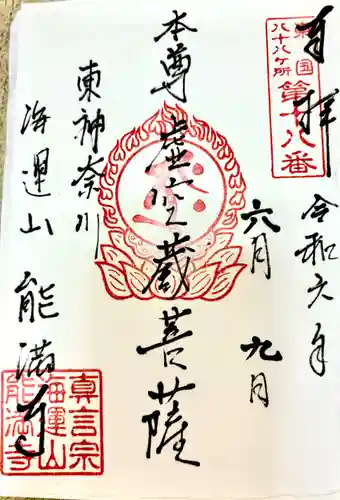 奉拝
東国
八十八ヶ所
第十八番
令和六年
六月 九月
本尊 虚空蔵菩薩
東神奈川
海運山 能満寺
真言宗
海運山
能満寺